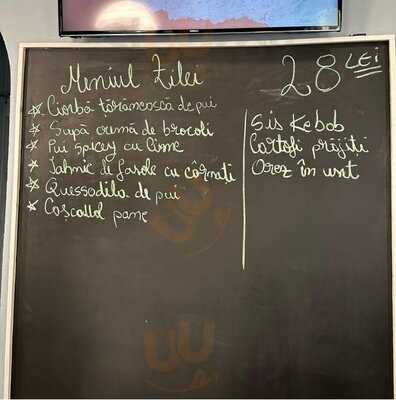 Meniul Zilei
28 LEI
* Ciorbă țărănească de pui
* Supă cremă de brocoli
* Pui spicey cu lime
* Iahnie de fasole cu cârnați
* Quessadila de pui
* Cașcaval pane
Sis Kebab
Cartofi prăjiți
Orez în unt